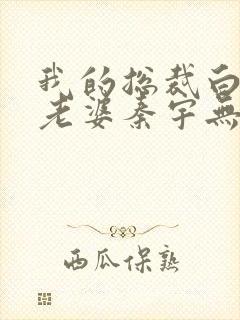 我的总裁白
老婆秦宇无
西瓜保熟